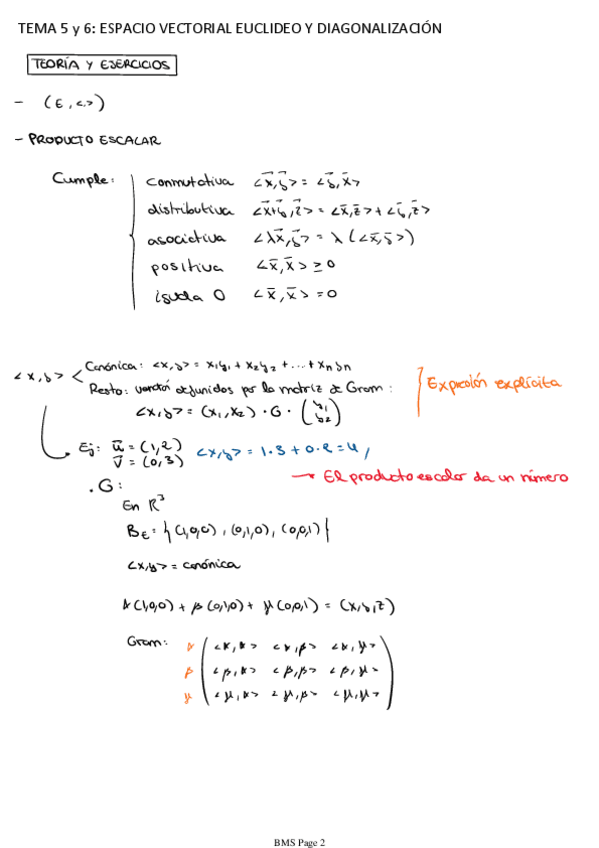 TEMA 5 y 6: ESPACIO VECTORIAL EUCLIDEO Y DIAGONALIZACIÓN
TEORÍA Y EJERCICIOS
- (E, <·>)
- PRODUCTO ESCALAR
Cumple:
conmutativa <x⃗,y⃗> = <y⃗,x⃗>
distributiva <x⃗+y⃗,z⃗> = <x̄,z̄> + <ȳ,z⃗>
asociativa <λx⃗,y⃗> = λ(<x̄,ȳ>)
positiva <x̄,x̄> ≥ 0
iguala 0 <x̄,x̄> = 0
<x,y>
Canónica: <x,y> = x₁y₁ + x₂y₂ + ... + xₙyₙ
Resto: vendrán definidos por la matriz de Gram:
<x,y> = (x₁,x₂) · G · (y₁ y₂)
Expresión explícita
Ej: u⃗ = (1,2)
v⃗ = (0,3)
<x,y> = 1·3 + 0·2 = 4,
→ El producto escalar da un número
. G:
En R³
B_E = {(1,0,0), (0,1,0), (0,0,1)}
<x,y> = canónica
α(1,0,0) + β(0,1,0) + μ(0,0,1) = (x,y,z)
Gram:
α <α,α> <α,β> <α,μ>
β <β,α> <β,β> <β,μ>
μ <μ,α> <μ,β> <μ,μ>
BMS Page 2